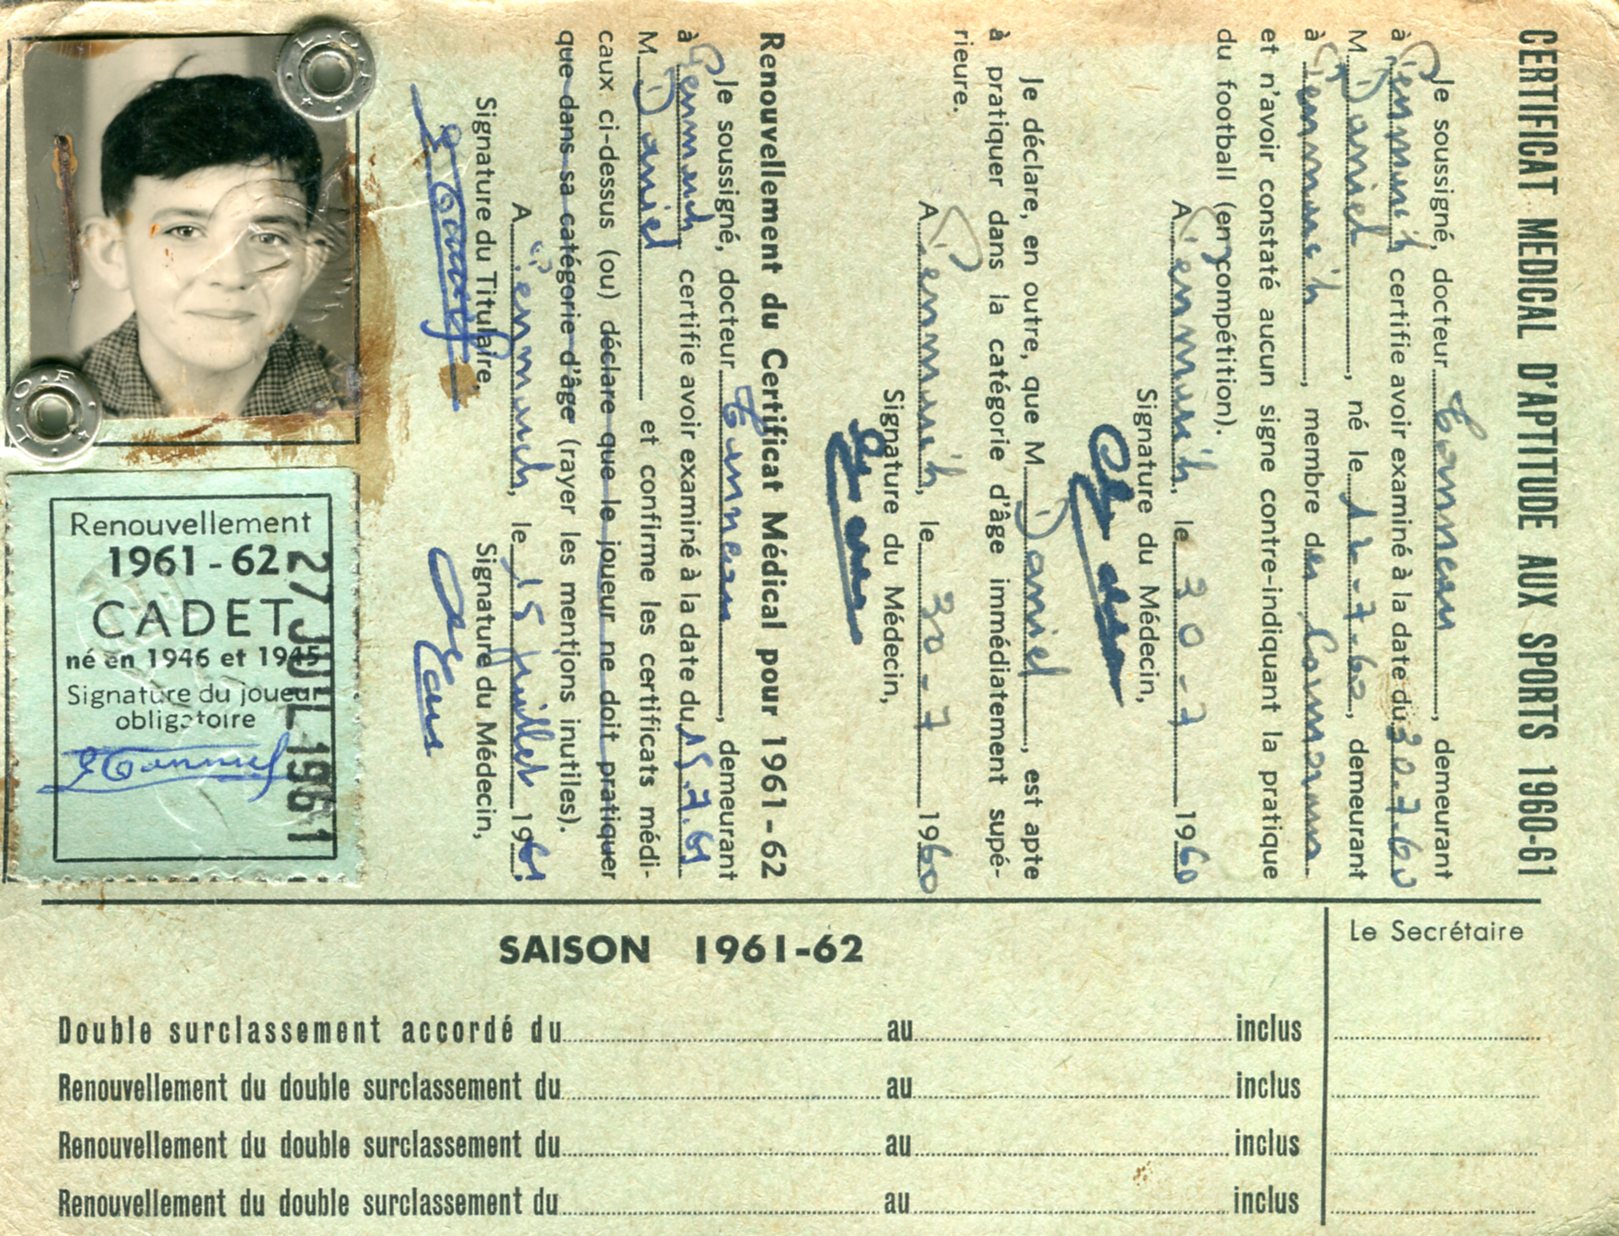 CERTIFICAT MEDICAL D'APTITUDE AUX SPORTS 1960-61
Je soussigné, docteur Tonneau, demeurant
à certifie avoir examiné à la date du 30.7.60
M. Daniel, né le 12-7-60, demeurant
à, membre de
et n'avoir constaté aucun signe contre-indiquant la pratique
du football (en compétition).
A, le 30-7 1960
Signature du Médecin,
Je déclare, en outre, que M. Daniel, est apte
à pratiquer dans la catégorie d'âge immédiatement supé-
rieure.
A, le 30-7 1960
Signature du Médecin,
Renouvellement du Certificat Médical pour 1961-62
Je soussigné, docteur, demeurant
à certifie avoir examiné à la date du 15.7.61
M. Daniel et confirme les certificats médi-
caux ci-dessus (ou) déclare que le joueur ne doit pratiquer
que dans sa catégorie d'âge (rayer les mentions inutiles).
A, le 15 juillet 1961
Signature du Titulaire, Signature du Médecin,
L.O.F.
L.O.F.
Renouvellement
1961-62
CADET
né en 1946 et 1945
Signature du joueur
obligatoire
27 JUIL 1961
SAISON 1961-62
Le Secrétaire
Double surclassement accordé du au inclus
Renouvellement du double surclassement du au inclus
Renouvellement du double surclassement du au inclus
Renouvellement du double surclassement du au inclus